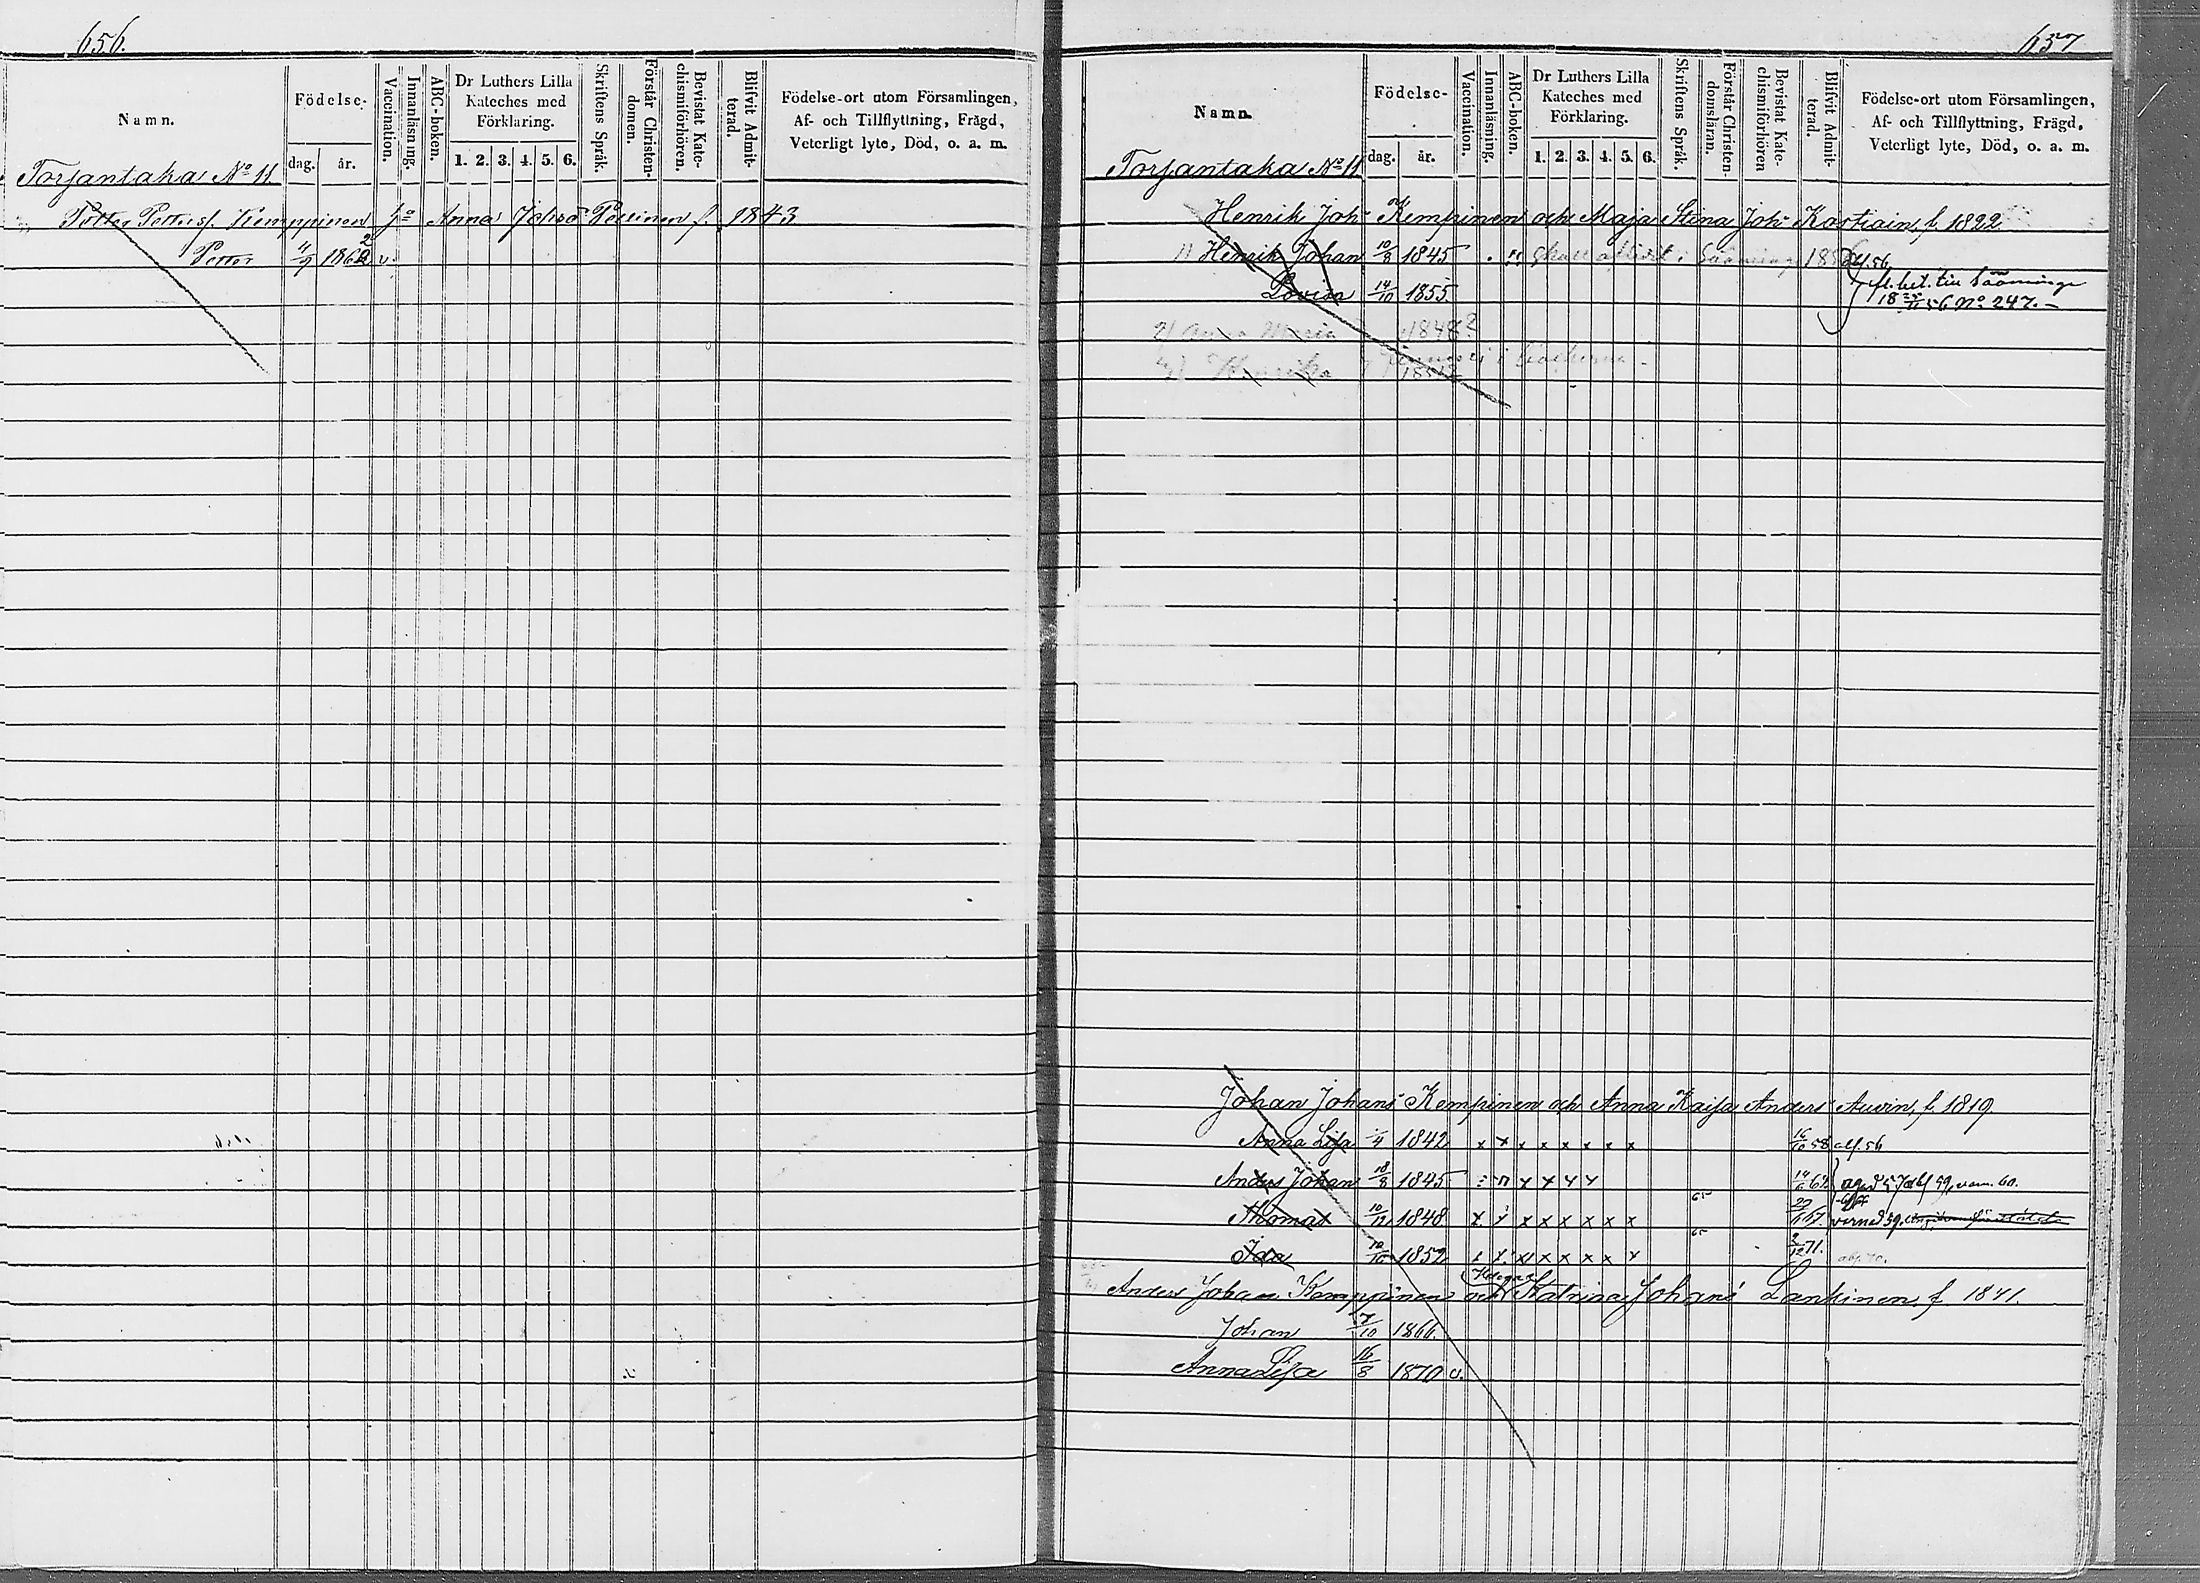 656.
Namn.
Födelse-
dag. år.
Vaccination.
Innanläsning.
ABC-boken.
Dr Luthers Lilla
Kateches med
Förklaring.
1. 2. 3. 4. 5. 6.
Skriftens Språk.
Förstår Christen-
domen.
Bevistat Kate-
chismiförhören.
Blifvit Admit-
terad.
Födelse-ort utom Församlingen,
Af- och Tillflyttning, Frägd,
Veterligt lyte, Död, o. a. m.
Torsantaka No 11
Petter Petters. Kemppinen Anna Johsd f. 1843
Petter 4/9 1862 v.
657
Namn.
Födelse-
dag. år.
Vaccination.
Innanläsning.
ABC-boken.
Dr Luthers Lilla
Kateches med
Förklaring.
1. 2. 3. 4. 5. 6.
Skriftens Språk.
Förstår Christen-
domsläran.
Bevistat Kate-
chismiförhören
Blifvit Admit-
terad.
Födelse-ort utom Församlingen,
Af- och Tillflyttning, Frägd,
Veterligt lyte, Död, o. a. m.
Torsantaka No 11
Henrik Joh Kempinen och Maja Stina Joh Kastiain, f. 1822
1) Henrik Johan 10/8 1845
Lovisa 14/10 1855 fl. bet. till Sääminge
1856 No 247.
2) Anna Maria 1848?
Johan Johans Kempinen och Anna Kaisa Anders Auvin, f. 1819
Anna Lisa 1842 x x x x x x x x 16/10 58
Anders Johan 18/8 1845
Thomas 10/12 1848 x x x x x x x
Ida 10/10 1852 x x x x x x x 3/12 71.
Anders Johan Kemppinen och Katrina Johans Lankinen, f. 1841.
Johan 17/10 1866.
Anna Lisa 16/8 1870 v.